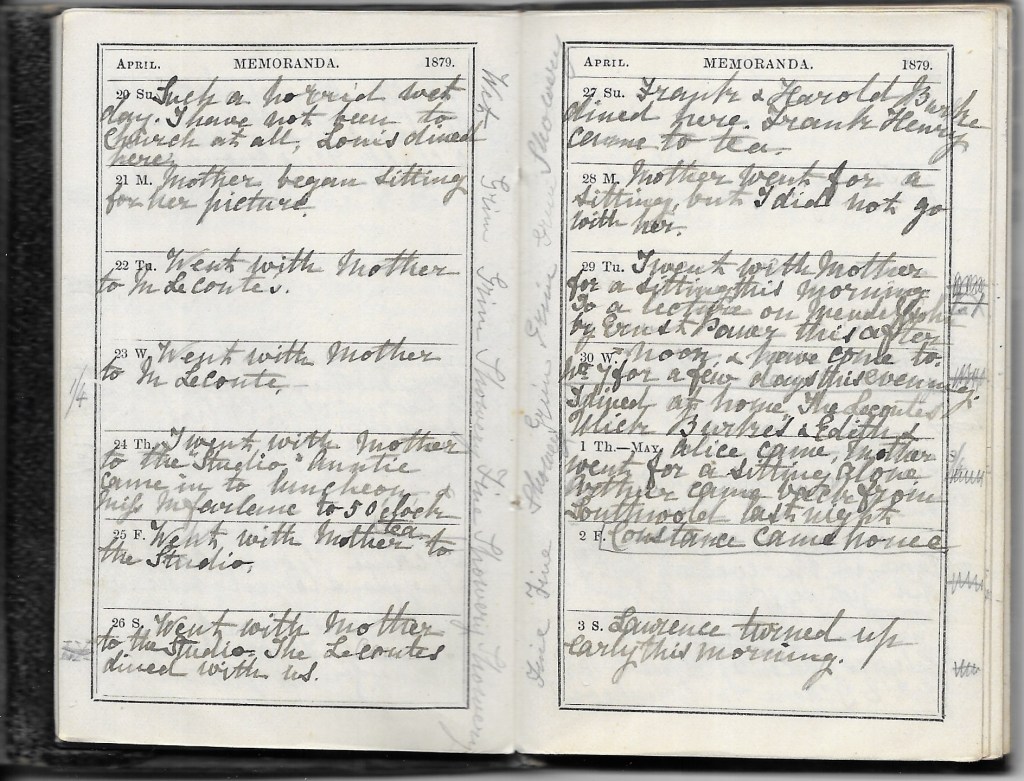 APRIL. MEMORANDA. 1879.
20 Su. Such a horrid wet
day. I have not been to
Church at all, Louis dined
here.
21 M. Mother began sitting
for her picture.
22 Tu. Went with Mother
to M Lecontes.
23 W. Went with Mother
to M Leconte,
1/4
24 Th. I went with Mother
to the "Studio," Auntie
came in to luncheon &
Miss Mcfarlane to 5 Oclock
tea
25 F. Went with Mother to
the Studio,
26 S. Went with Mother
to the Studio. The Lecontes
dined with us.
Wet Fine Fine Showery Fine Showery Showery
Fine Fine Showery Fine Fine Fine Showery
APRIL. MEMORANDA. 1879.
27 Su. Frank & Harold Burke
dined here. Frank Henry
came to tea.
28 M. Mother went for a
sitting, but I did not go
with her.
29 Tu. I went with Mother
for a sitting this morning
To a lecture on Mendelssohn
by Ernst Pauer this after
30 W. noon, & have come to
No 7 for a few days this evening.
I dined at home, The Lecontes
Burke's & Edith &
1 Th.—May. Alice came, Mother
went for a sitting alone
Arthur came back from
last night
2 F. Constance came home
3 S. Lawrence turned up
early this morning.